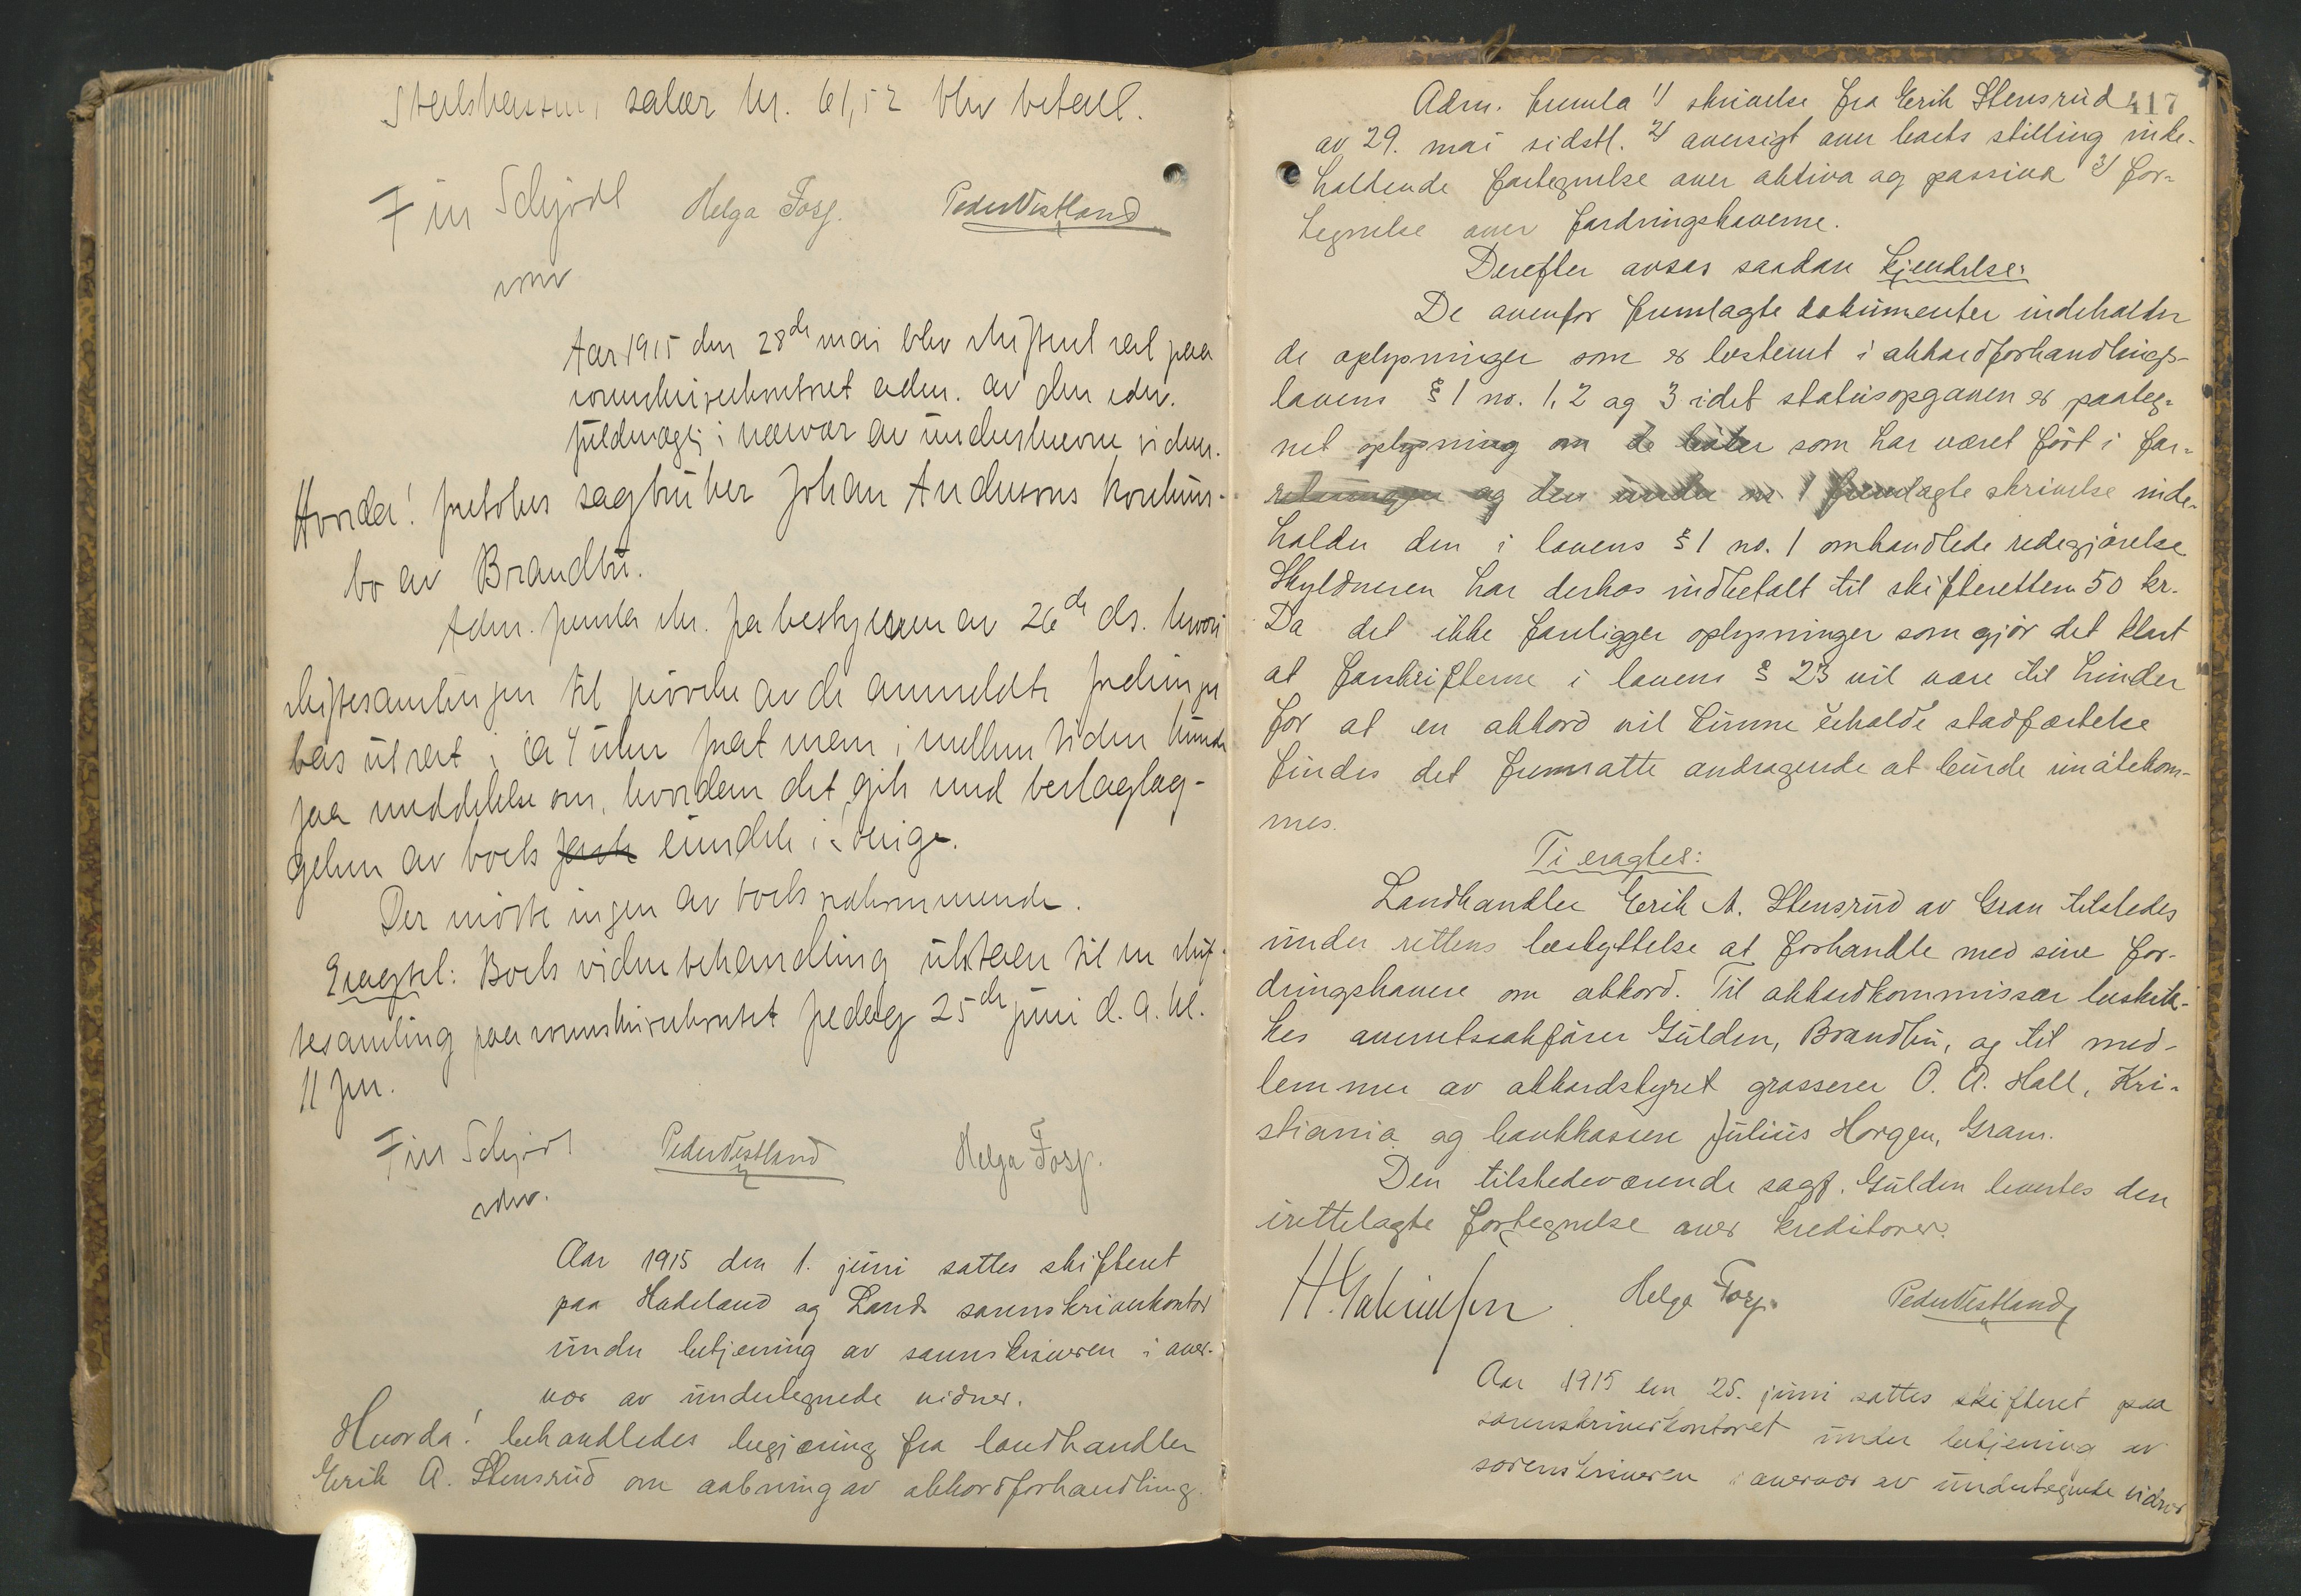 salær kr. 61,52 blev betalt.
Fin Schjödt Helga Fosf. Peder Vestland
Aar 1915 den 28de mai blev skifteret sat paa
sorenskriverkontoret adm. av den edsv.
fuldmægtig i nærvær av underskrevne vidner.
Hvorda! foretokes sagbruker Johan Andersens konkurs-
bo av Brandbu.
Adm. fremla skr. fra bestyreren av 26de ds. hvori
skiftesamlingen til prövelse av de anmeldte fordringer
bes utsat i ca 4 uker frat mem i mellem tiden kunde
faa meddelelse om, hvordan det gik med beslaglæg-
gelsen av boets eiendele i Sverige.
Der mötte ingen av boets vedkommende.
Eragtet: Boets videre behandling utstaar til en skif-
tesamling paa sorenskriverkontoret fredag 25de juni d. a. kl.
11 fm.
Fin Schjödt Peder Vestland Helga Fosf.
edsv.
Aar 1915 den 1. juni sattes skifteret
paa Hadeland og Lands sorenskriverkontor
under betjening av sorenskriveren i over-
vær av undertegnede vidner.
Hvorda! behandledes begjæring fra landhandler
Erik A. Stensrud om aabning av akkordforhandling.
Adm. fremla 1) skrivelse fra Erik Stensrud 417
av 29. mai sidstl. 2) oversigt over boets stilling inde-
holdende fortegnelse over aktiva og passiva 3) for-
tegnelse over fordringshaverne.
Derefter avsas saadan kjendelse:
De ovenfor fremlagte dokumenter indeholder
de oplysninger som er bestemt i akkordforhandlings-
lovens § 1 no. 1, 2 og 3 idet statusopgaven er paateg-
net oplysning om de böker som har været fört i for-
retningen og den under no 1 fremlagte skrivelse inde-
holder den i lovens § 1 no. 1 omhandlede redegjörelse.
Skyldneren har derhos indbetalt til skifteretten 50 kr.
Da det ikke foreligger oplysninger som gjör det klart
at forskrifterne i lovens § 23 vil være til hinder
for at en akkord vil kunne erholde stadfæstelse
findes det fremsatte andragende at burde imötekom-
mes.
Ti eragtes:
Landhandler Erik A. Stensrud av Gran tilstedes
under rettens beskyttelse at forhandle med sine for-
dringshavere om akkord. Til akkordkommissær beskik-
kes overretssakförer Gulden, Brandbu, og til med-
lemmer av akkordstyret grosserer O. A. Hall, Kri-
stiania og bankkasserer Julius Horgen, Gran.
Den tilstedeværende sagf. Gulden leveres den
irettelagte fortegnelse over kreditorer.
Helga Fosf. Peder Vestland
Aar 1915 den 25. juni sattes skifteret paa
sorenskriverkontoret under betjening av
sorenskriveren i overvær av undertegnede vidner